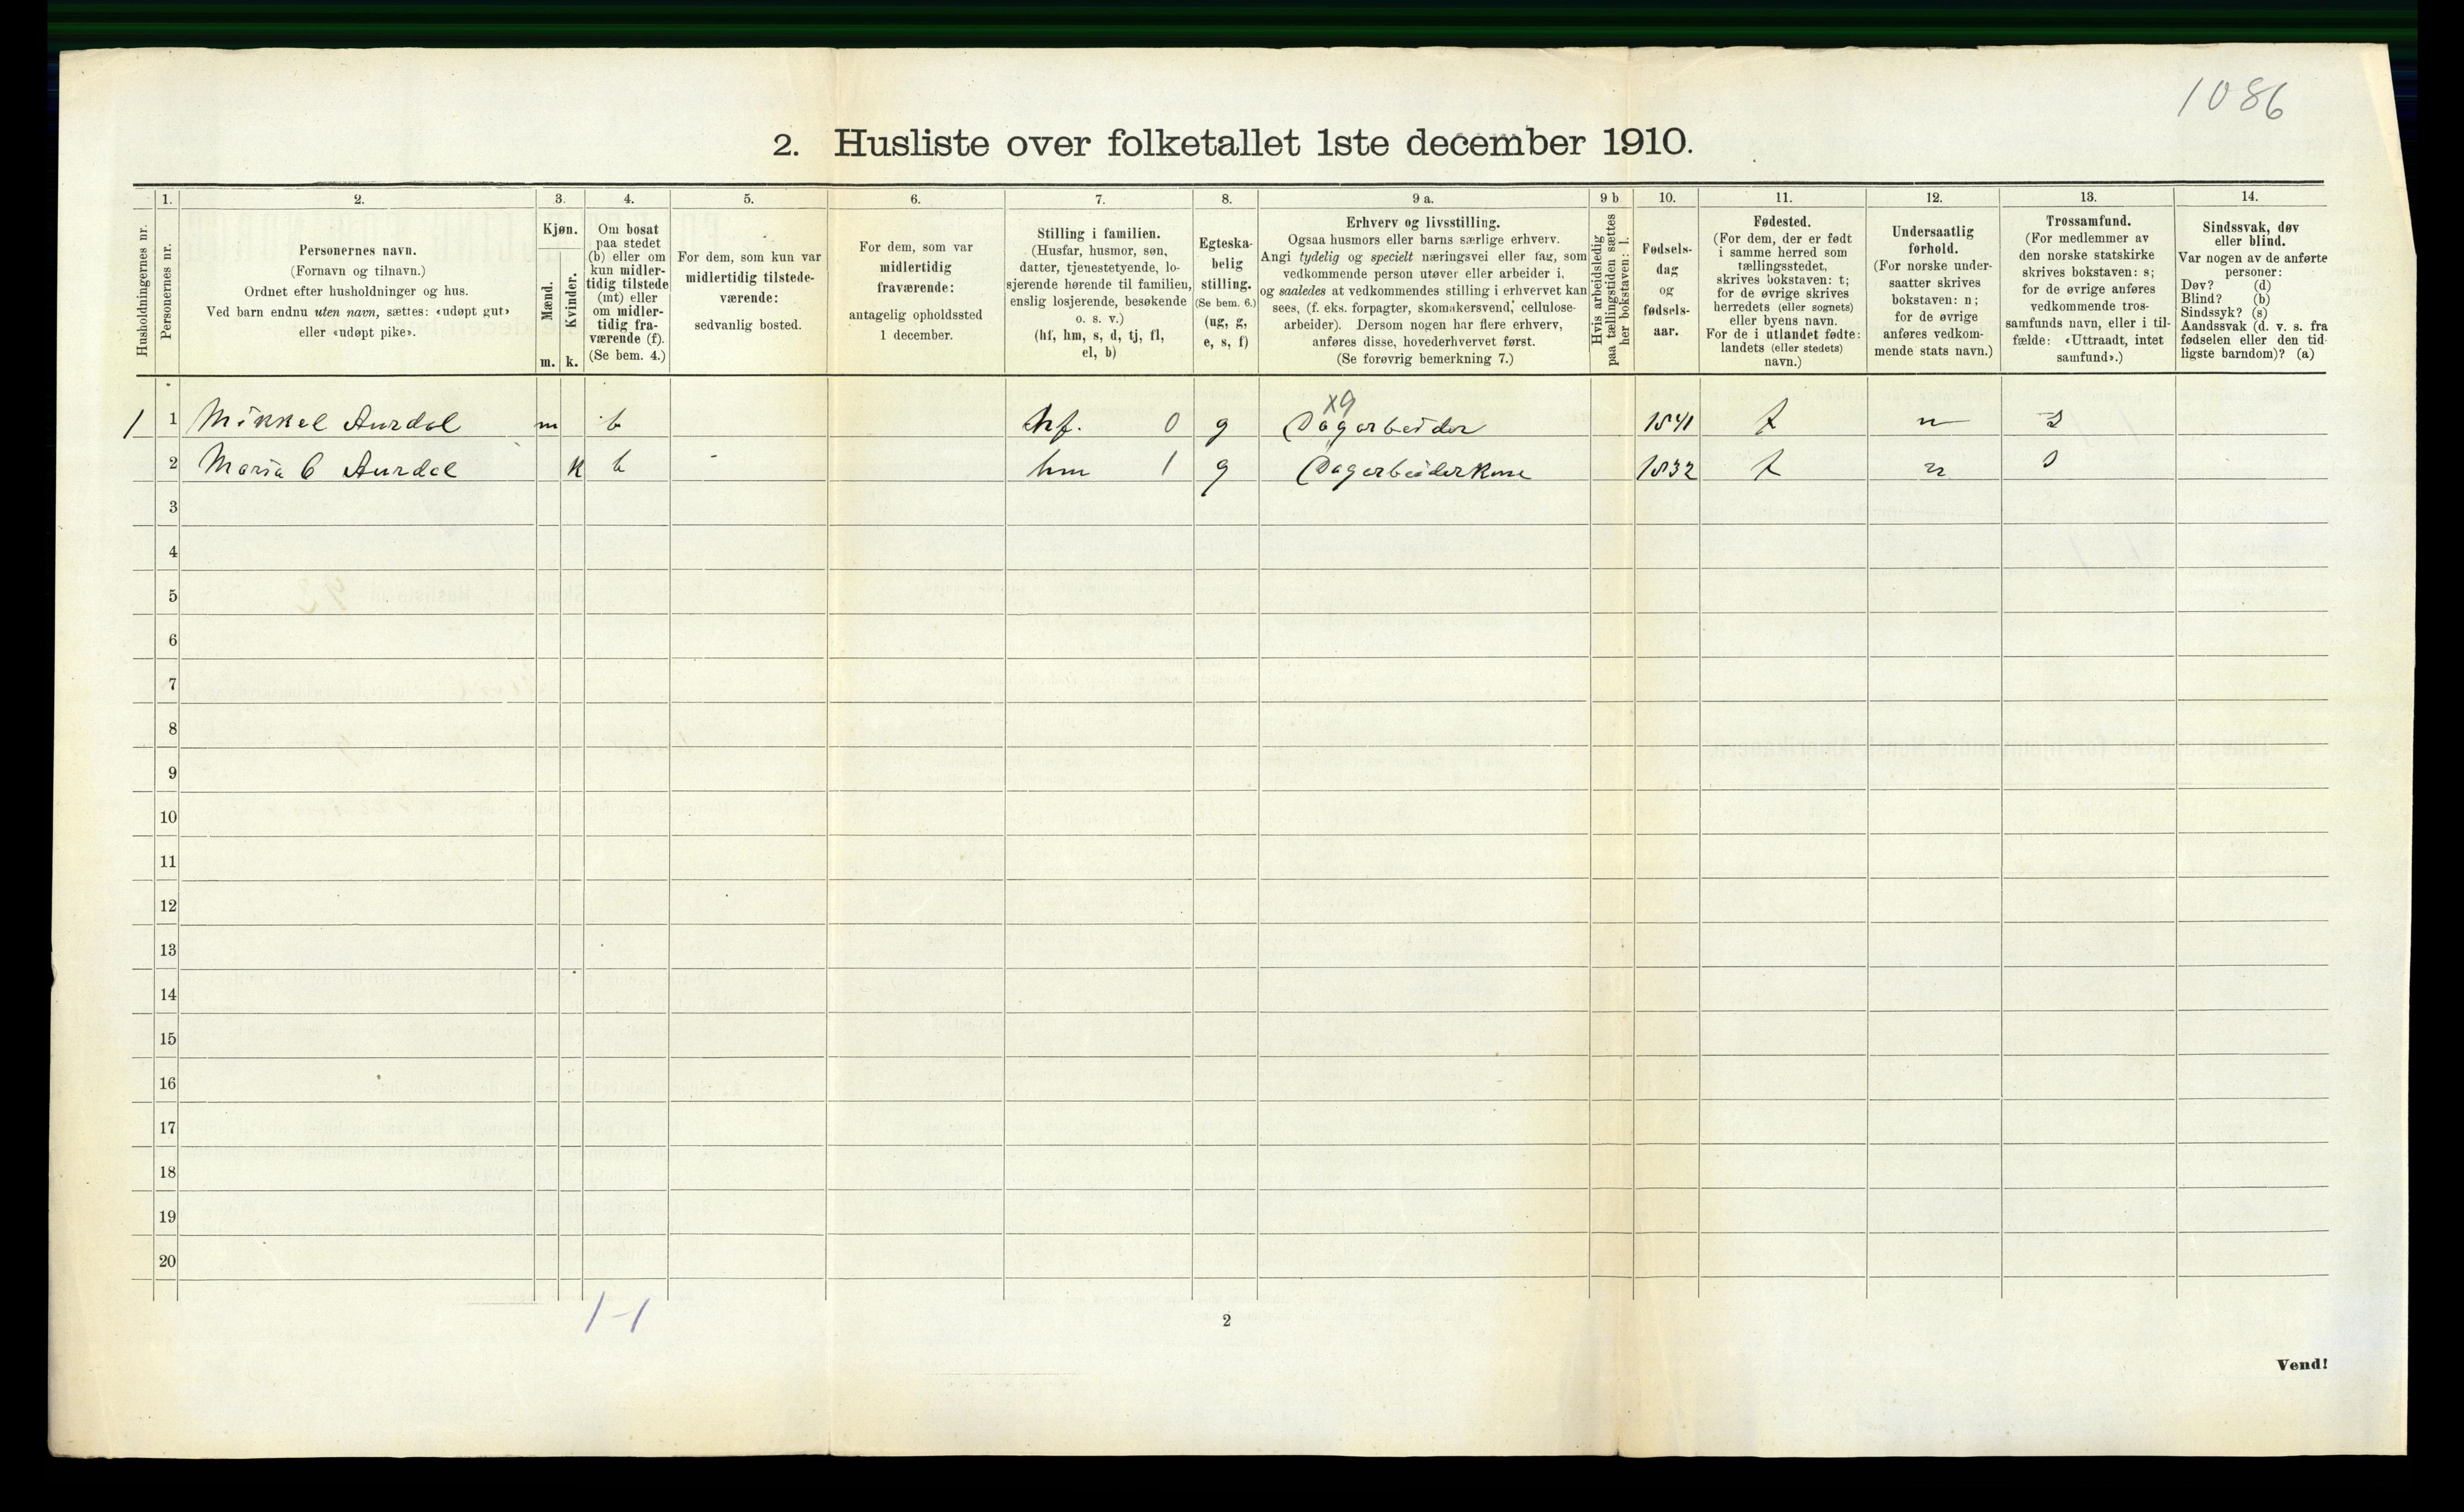 1086
2. Husliste over folketallet 1ste december 1910.
Husholdningernes nr.
1.
Personernes nr.
2.
Personernes navn.
(Fornavn og tilnavn.)
Ordnet efter husholdninger og hus.
Ved barn endnu uten navn, sættes: «udøpt gut»
eller «udøpt pike».
3.
Kjøn.
Mænd.
m.
Kvinder.
k.
4.
Om bosat
paa stedet
(b) eller om
kun midler-
tidig tilstede
(mt) eller
om midler-
tidig fra-
værende (f).
(Se bem. 4.)
5.
For dem, som kun var
midlertidig tilstede-
værende:
sedvanlig bosted.
6.
For dem, som var
midlertidig
fraværende:
antagelig opholdssted
1 december.
7.
Stilling i familien.
(Husfar, husmor, søn,
datter, tjenestetyende, lo-
sjerende hørende til familien,
enslig losjerende, besøkende
o. s. v.)
(hf, hm, s, d, tj, fl,
el, b)
8.
Egteska-
belig
stilling.
(Se bem. 6.)
(ug, g,
e, s, f)
9 a.
Erhverv og livsstilling.
Ogsaa husmors eller barns særlige erhverv.
Angi tydelig og specielt næringsvei eller fag, som
vedkommende person utøver eller arbeider i,
og saaledes at vedkommendes stilling i erhvervet kan
sees, (f. eks. forpagter, skomakersvend, cellulose-
arbeider). Dersom nogen har flere erhverv,
anføres disse, hovederhvervet først.
(Se forøvrig bemerkning 7.)
9 b
Hvis arbeidsledig
paa tællingstiden sættes
her bokstaven: l.
10.
Fødsels-
dag
og
fødsels-
aar.
11.
Fødested.
(For dem, der er født
i samme herred som
tællingsstedet,
skrives bokstaven: t;
for de øvrige skrives
herredets (eller sognets)
eller byens navn.
For de i utlandet fødte:
landets (eller stedets)
navn.)
12.
Undersaatlig
forhold.
(For norske under-
saatter skrives
bokstaven: n;
for de øvrige
anføres vedkom-
mende stats navn.)
13.
Trossamfund.
(For medlemmer av
den norske statskirke
skrives bokstaven: s;
for de øvrige anføres
vedkommende tros-
samfunds navn, eller i til-
fælde: «Uttraadt, intet
samfund».)
14.
Sindssvak, døv
eller blind.
Var nogen av de anførte
personer:
Døv? (d)
Blind? (b)
Sindssyk? (s)
Aandssvak (d. v. s. fra
fødselen eller den tid-
ligste barndom)? (a)
X9
1 1 Mikkel Aurdal m b hf. 0 g Dagarbeider 1841 t n s
2 Maria C Aurdal k b - hm 1 g Dagarbeiderkone 1832 t n s
3
4
5
6
7
8
9
10
11
12
13
14
15
16
17
18
19
20
1-1
2
Vend!